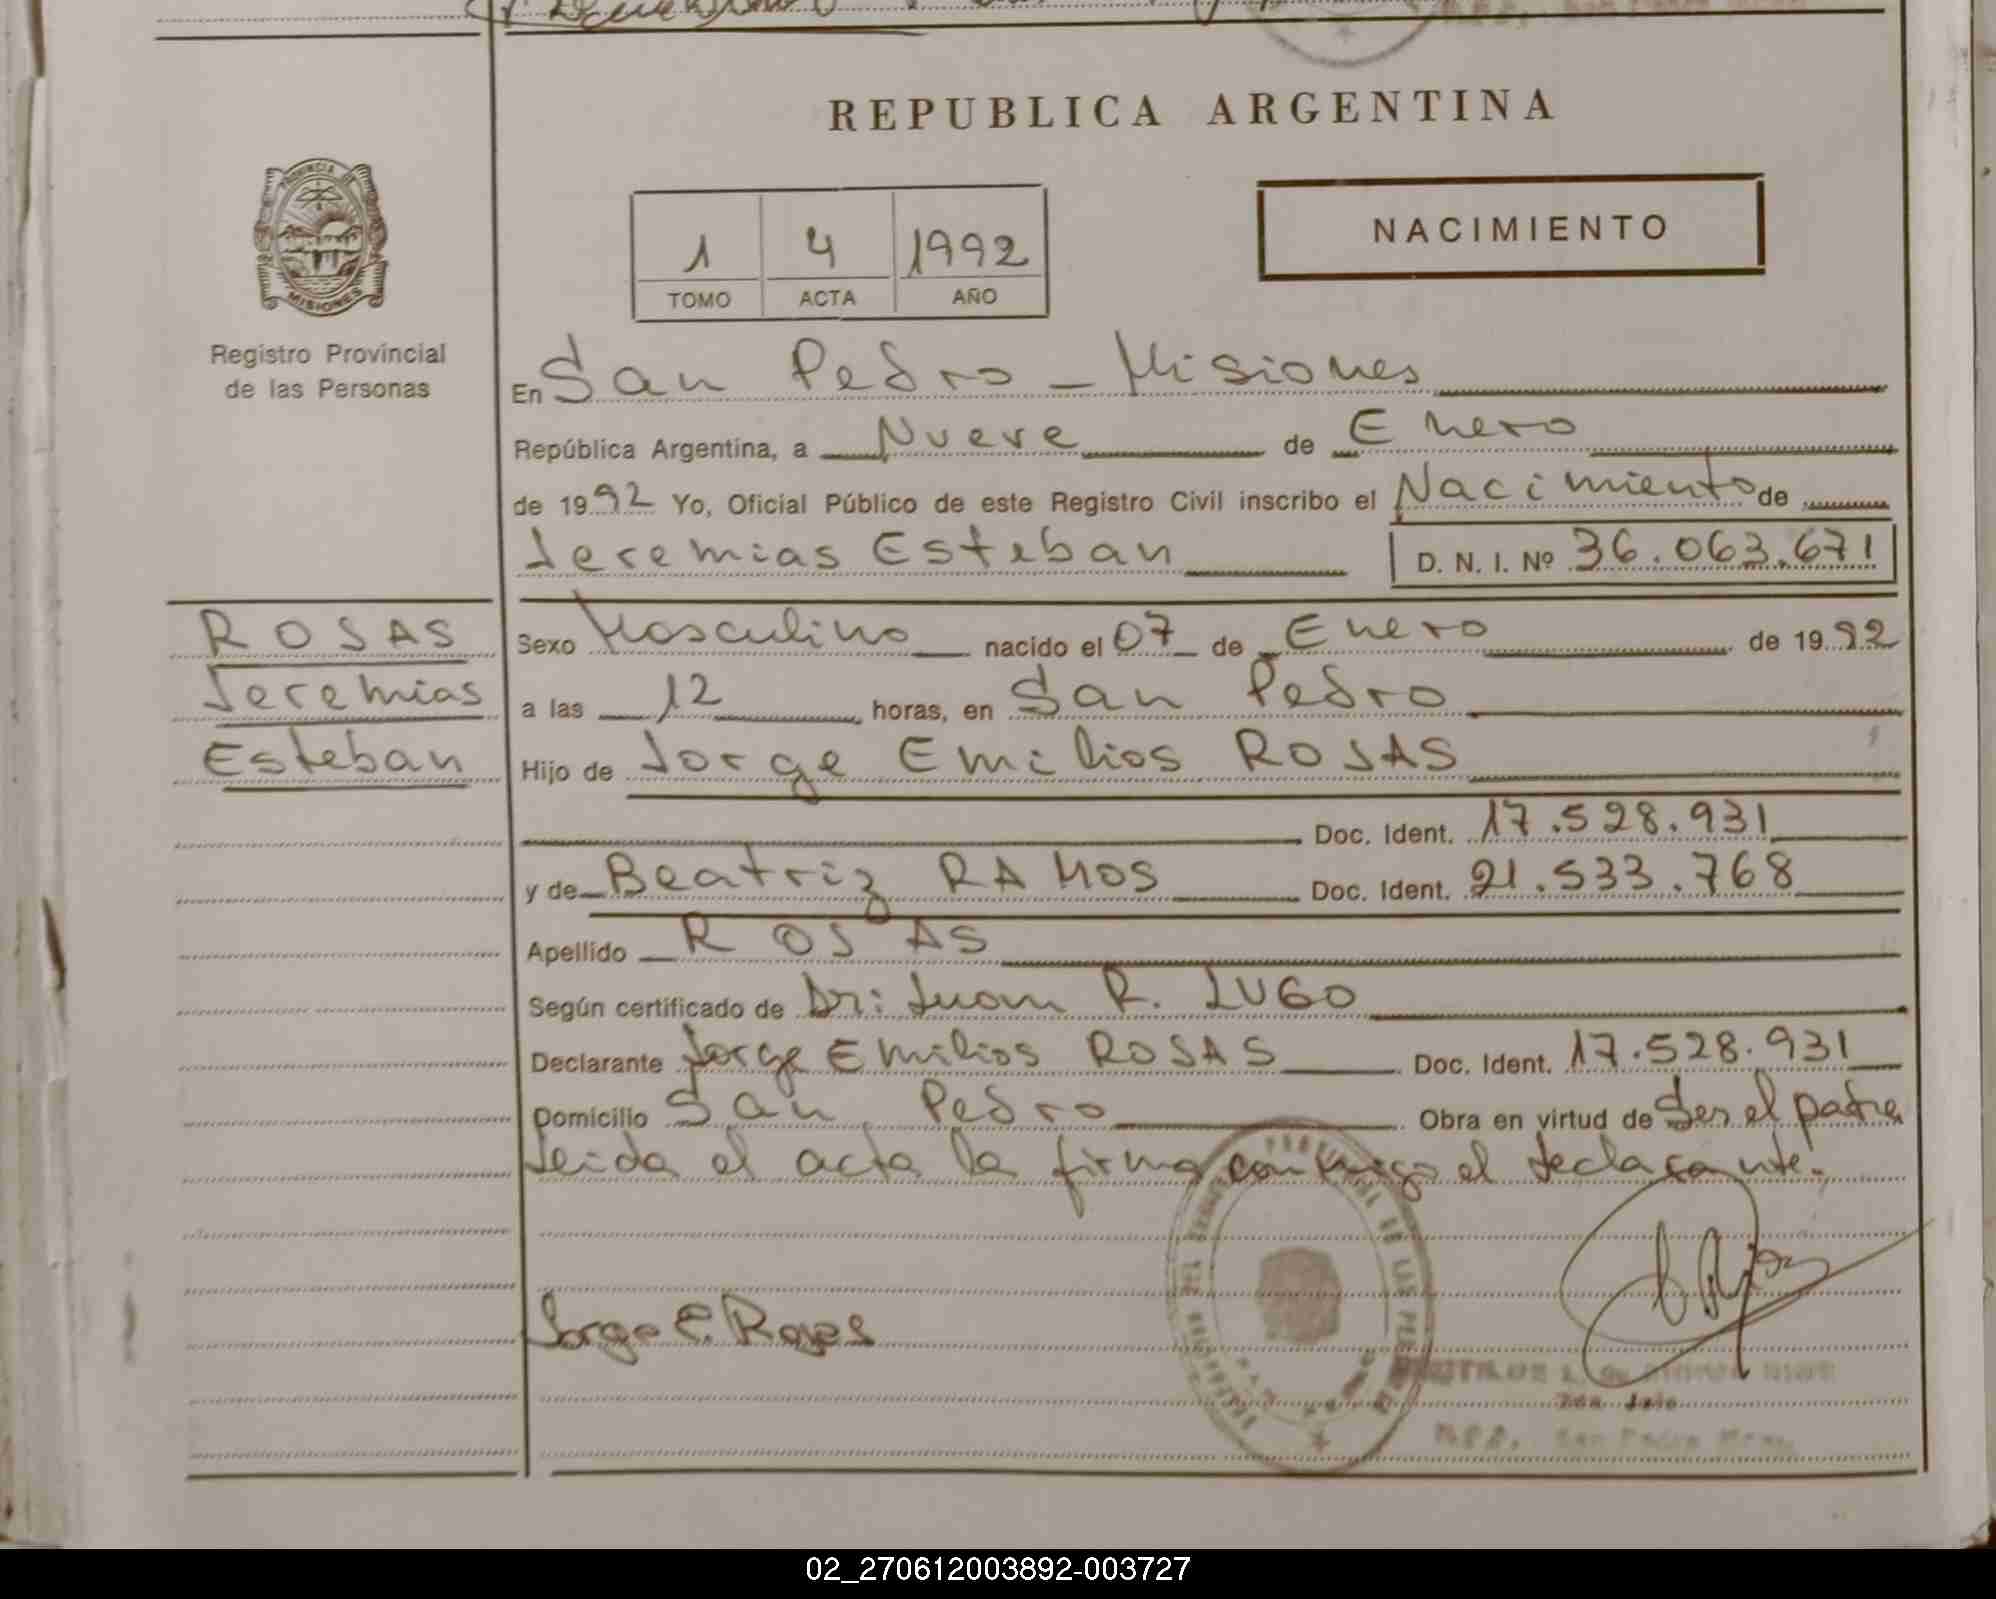 REPUBLICA ARGENTINA
PROVINCIA DE
MISIONES
Registro Provincial
de las Personas
1 4 1992
TOMO ACTA AÑO
NACIMIENTO
En San Pedro - Misiones
República Argentina, a Nueve de Enero
de 1992 Yo, Oficial Público de este Registro Civil inscribo el Nacimiento de
Jeremias Esteban D. N. I. Nº 36.063.671
ROSAS
Jeremias
Esteban
Sexo Masculino nacido el 07 de Enero de 1992
a las 12 horas, en San Pedro
Hijo de Jorge Emilios ROSAS
Doc. Ident. 17.528.931
y de Beatriz RAMOS Doc. Ident. 21.533.768
Apellido ROSAS
Según certificado de Dr: Juan R. LUGO
Declarante Jorge Emilios ROSAS Doc. Ident. 17.528.931
Domicilio San Pedro Obra en virtud de Ser el padre
Leida el acta la firma conmigo el declarante.
Jorge E. Rosas
San Pedro
02_270612003892-003727